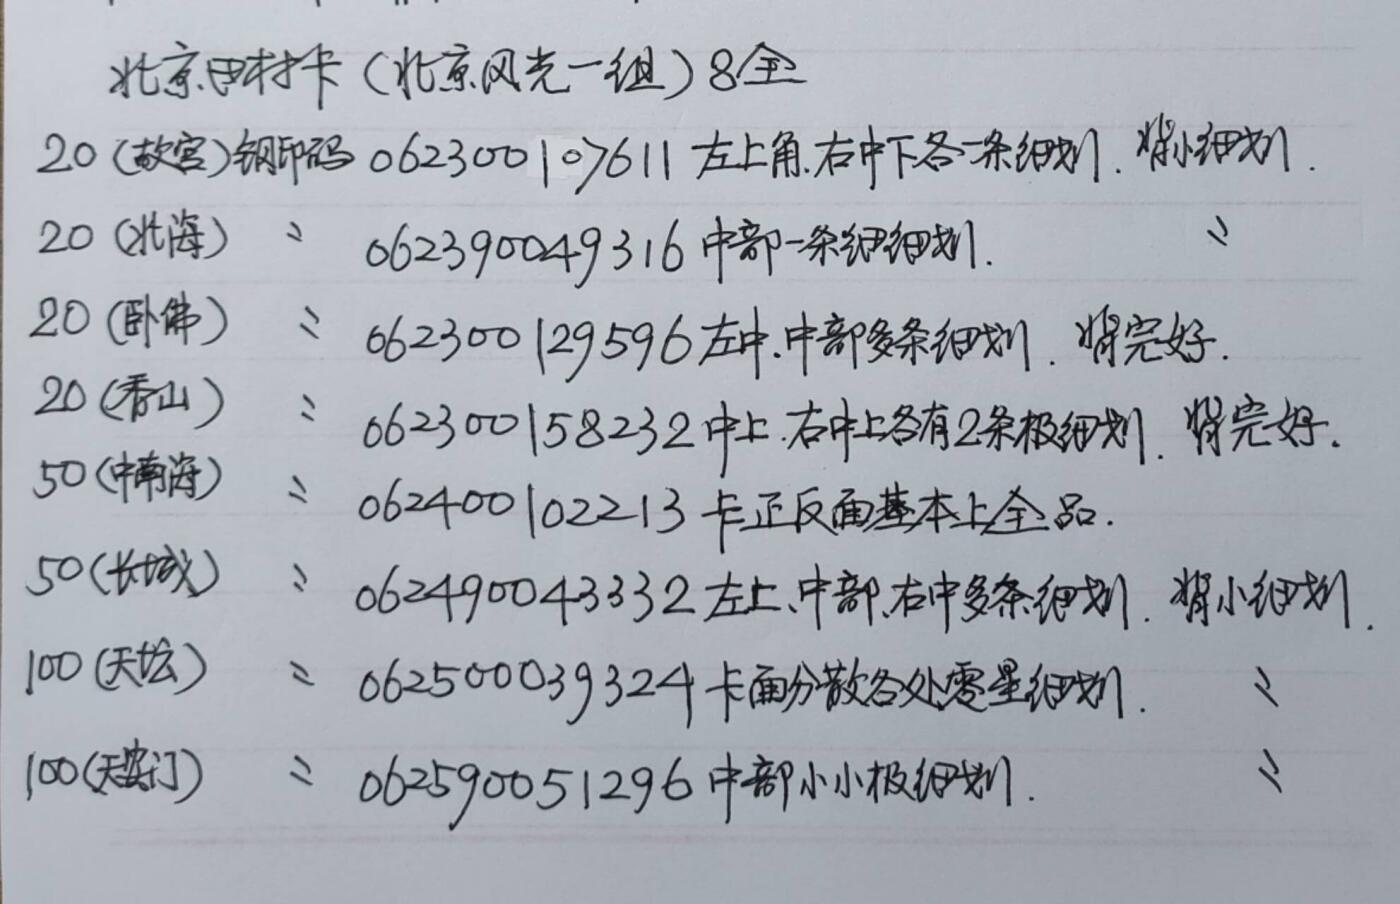 北京田村卡(北京风光一组)8全
20(故宫)钢印码 062300107611 左上角.右中下各一条细划.背小细划.
20(北海) 〃 062390049316 中部一条细细划. 〃
20(卧佛) 〃 062300129596 左中.中部多条细划.背完好.
20(香山) 〃 062300158232 中上.右中上各有2条极细划.背完好.
50(中南海) 〃 062400102213 卡正反面基本上全品.
50(长城) 〃 062490043332 左上、中部、右中多条细划.背小细划.
100(天坛) 〃 062500039324 卡面分散各处零星细划. 〃
100(天安门) 〃 062590051296 中部小小极细划. 〃